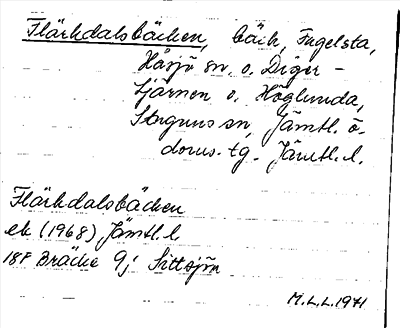 Flärkdalsbäcken, bäck, Fugelsta,
Håsjö sn, o. Diger-
tjärnen o. Höglunda,
Stuguns sn, Jämtl. ö.
doms. tg. Jämtl. l.
Flärkdalsbäcken
ek (1968) Jämtl. l.
18F Bräcke 9j Sittsjön
M.L.L. 1971